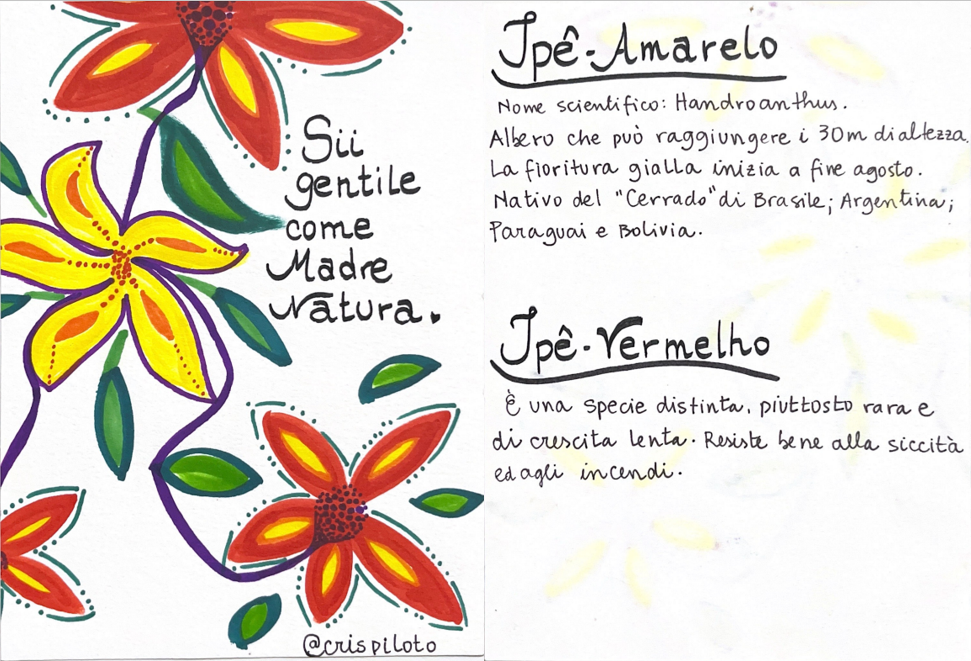 Sii
gentile
come
Madre
Natura.
@crispiloto
Ipê-Amarelo
Nome scientifico: Handroanthus.
Albero che può raggiungere i 30m di altezza.
La fioritura gialla inizia a fine agosto.
Nativo del "Cerrado" di Brasile; Argentina;
Paraguai e Bolivia.
Ipê-Vermelho
È una specie distinta, piuttosto rara e
di crescita lenta. Resiste bene alla siccità
ed agli incendi.